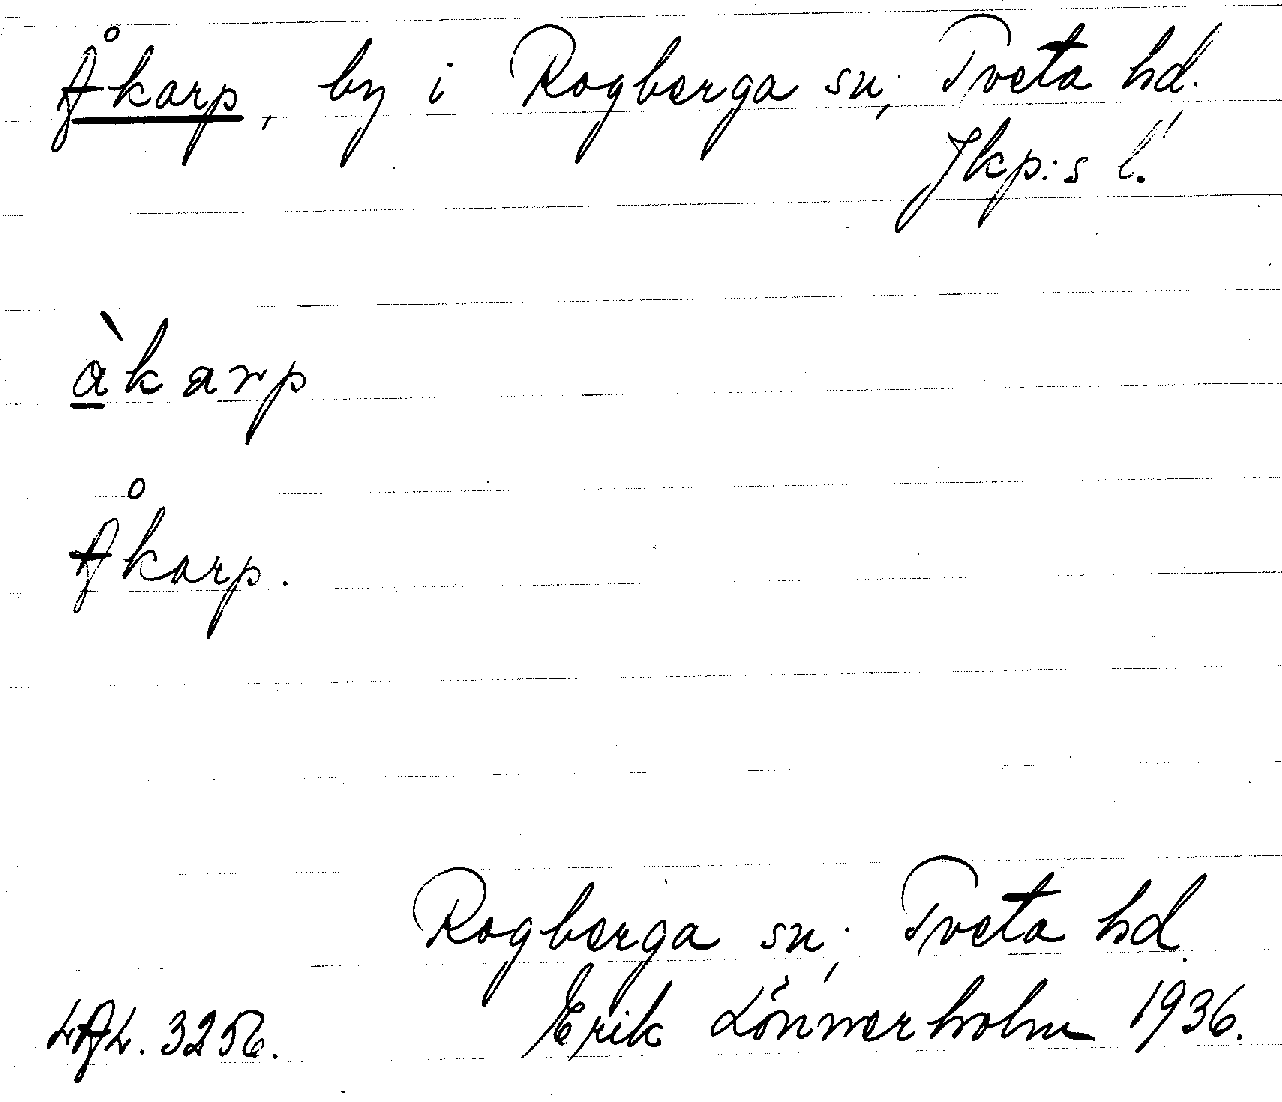 Åkarp, by i Rogberga sn; Tveta hd.
Jkp:s l.
àkarp
Åkarp.
Rogberga sn; Tveta hd.
LAL. 3256. Erik Lönnerholm 1936.